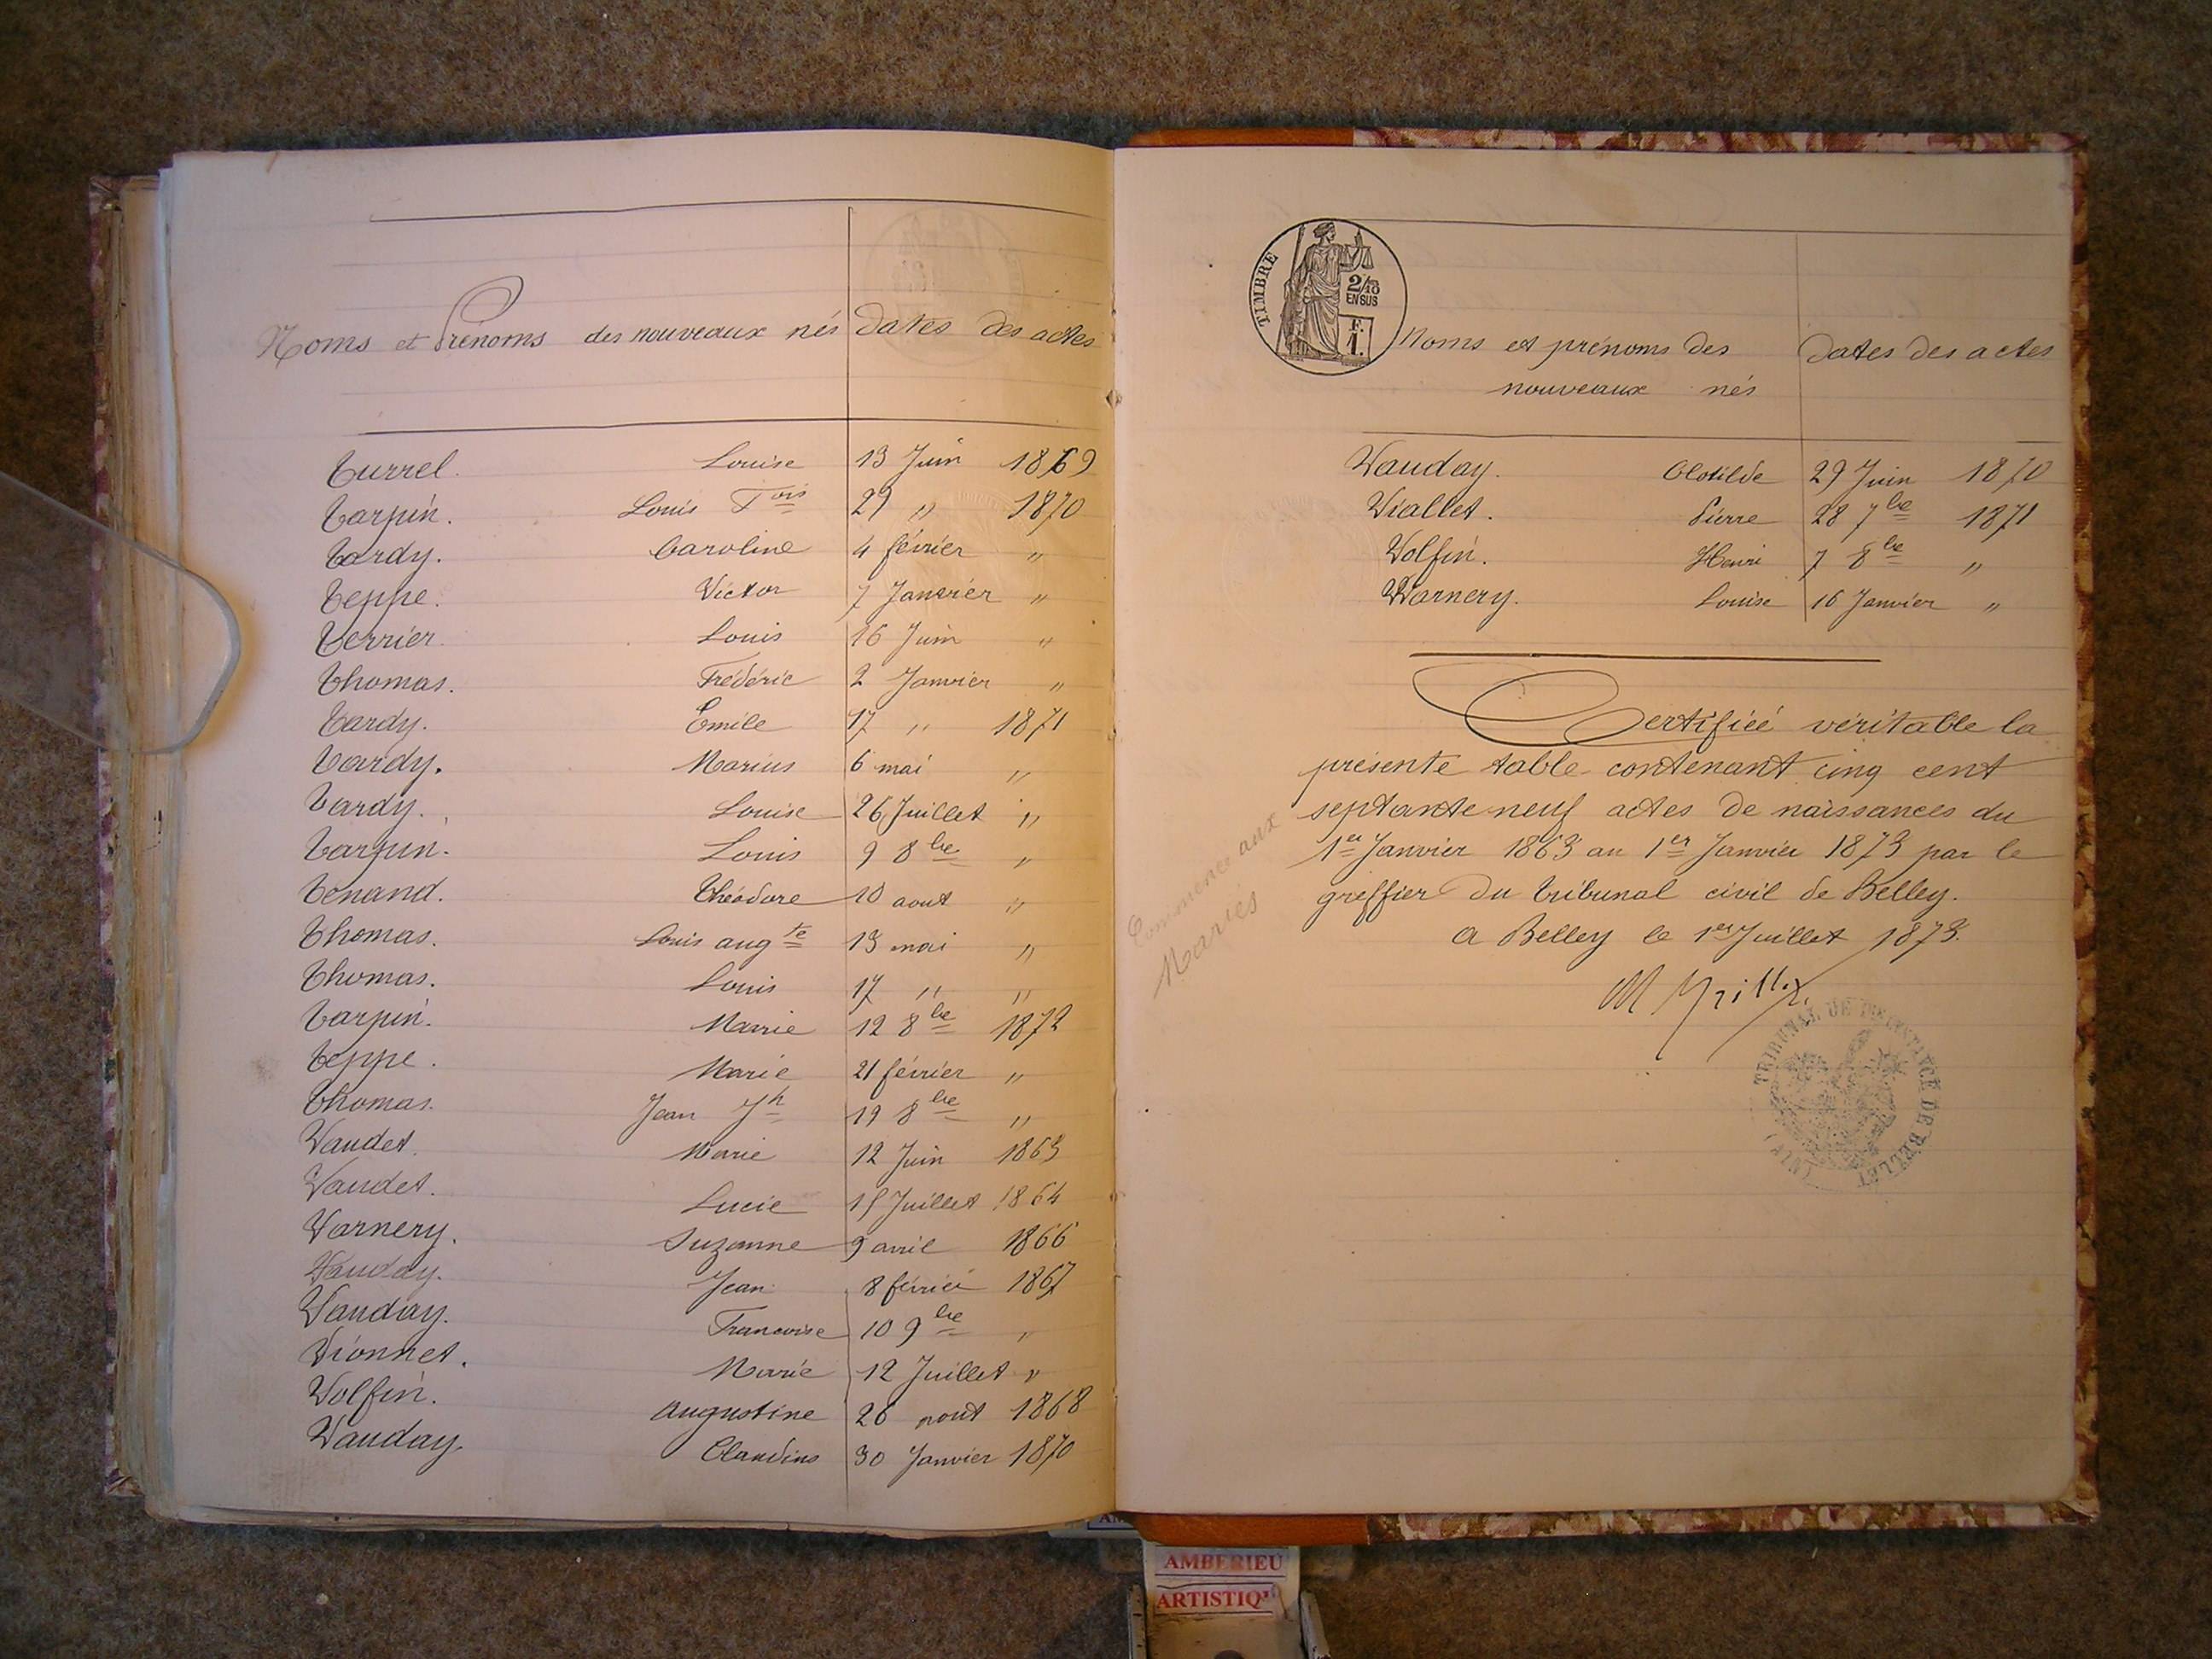 Noms et Prénoms des nouveaux nés dates des actes
Turrel. Louise 13 Juin 1869
Tarpin. Louis Fois 29 " 1870
Tardy. Caroline 4 février "
Teppe. Victor 7 Janvier "
Terrier Louis 16 Juin "
Thomas. Frédéric 2 Janvier "
Tardy. Emile 17 " 1871
Tardy. Marius 6 mai "
Tardy. Louise 26 Juillet "
Tarpin. Louis 9 8bre "
Tenand. Théodore 10 aout "
Thomas. Louis augte 13 mai "
Thomas. Louis 17 " "
Tarpin. Marie 12 8bre 1872
Teppe. Marie 21 février "
Thomas. Jean Jh 19 8bre "
Vaudet. Marie 12 Juin 1863
Vaudet. Lucie 15 Juillet 1864
Varnery. Suzanne 9 avril 1866
Vauday. Jean 8 février 1867
Vauday. Francoise 10 9bre "
Vionnet. Marie 12 Juillet "
Volfin. Augustine 26 aout 1868
Vauday. Claudius 30 Janvier 1870
TIMBRE
2/10
EN SUS
F.
1.
Noms et prénoms des dates des actes
nouveaux nés
Vauday. Clotilde 29 Juin 1870
Viallet. Pierre 28 7bre 1871
Volfin. Henri 7 8bre "
Varnery. Louise 16 Janvier "
Certifiée véritable la
présente table contenant cinq cent
septante neuf actes de naissances du
1er Janvier 1863 au 1er Janvier 1873 par le
greffier du tribunal civil de Belley.
A Belley le 1er Juillet 1873.
Commence aux
Mariés
TRIBUNAL DE 1ère INSTANCE DE BELLEY (AIN)
AMBERIEU
ARTISTIQ